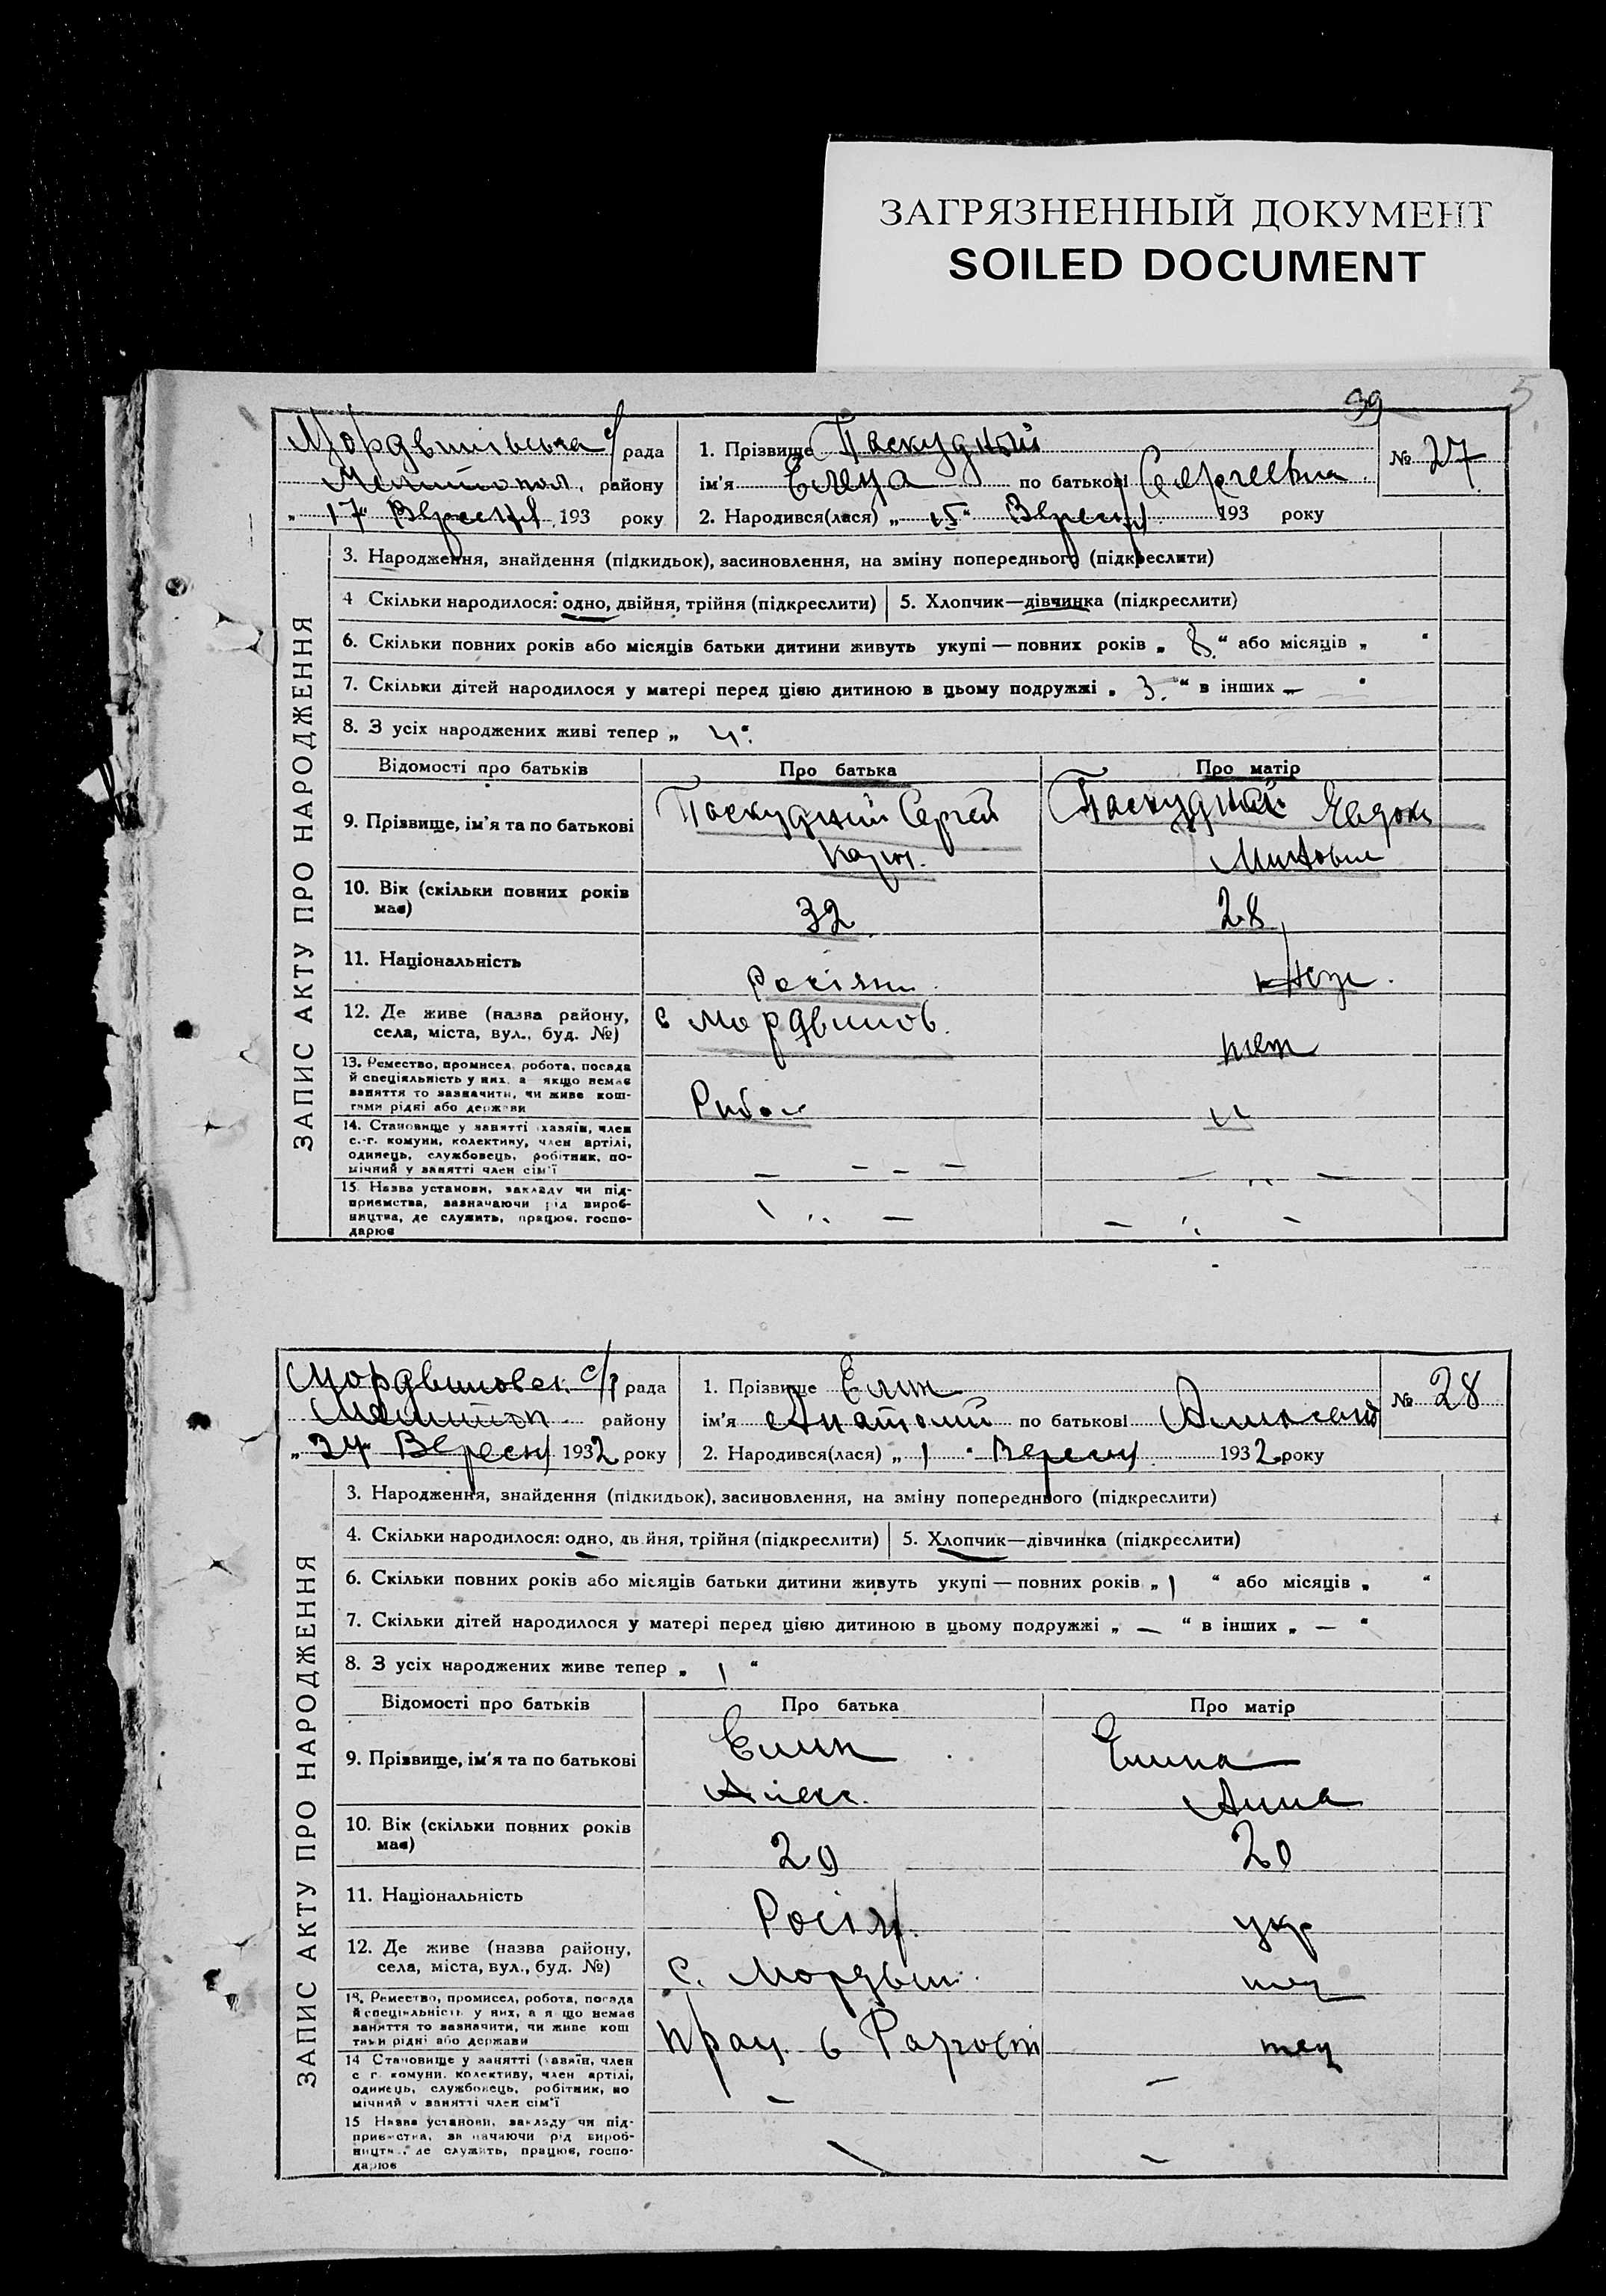 ЗАГРЯЗНЕННЫЙ ДОКУМЕНТ
SOILED DOCUMENT
5
39
рада
району
„ 17 " Вересня 193 року
1. Прізвище Паскудный
ім'я по батькові Сергеевна
2. Народився(лася) „ 15 " Вересня 193 року
№ 27
ЗАПИС АКТУ ПРО НАРОДЖЕННЯ
3. Народження, знайдення (підкидьок), засиновлення, на зміну попереднього (підкреслити)
4 Скільки народилося: одно, двійня, трійня (підкреслити) 5. Хлопчик—дівчинка (підкреслити)
6. Скільки повних років або місяців батьки дитини живуть укупі — повних років „ 8 " або місяців „ "
7. Скільки дітей народилося у матері перед цією дитиною в цьому подружжі „ 3. " в інших — "
8. З усіх народжених живі тепер „ 4 "
Відомості про батьків Про батька Про матір
9. Прізвище, ім'я та по батькові
Паскудний Сергей
10. Вік (скільки повних років
має)
32 28
11. Національність
12. Де живе (назва району,
села, міста, вул., буд. №)
с Мордвинов.
13. Ремество, промисел, робота, посада
й спеціяльність у них, а якщо немає
заняття то зазначити, чи живе кош-
тами рідні або держави
14. Становище у занятті хазяїн, член
с.-г. комуни, колективу, член артілі,
одинець, службовець, робітник, по-
мічний у занятті член сім'ї
15. Назва установи, закладу чи під-
приємства, зазначаючи рід вироб-
ництва, де служить, працює, госпо-
дарює
Мордвиновск. с/р рада
району
„ 24 " Вересня 1932 року
1. Прізвище Елин
ім'я Анатолий по батькові Александ
2. Народився(лася) „ 1 " Вересня 1932 року
№ 28
ЗАПИС АКТУ ПРО НАРОДЖЕННЯ
3. Народження, знайдення (підкидьок), засиновлення, на зміну попереднього (підкреслити)
4. Скільки народилося: одно, двійня, трійня (підкреслити) 5. Хлопчик—дівчинка (підкреслити)
6. Скільки повних років або місяців батьки дитини живуть укупі — повних років „ 1 " або місяців „ "
7. Скільки дітей народилося у матері перед цією дитиною в цьому подружжі „ — " в інших „ — "
8. З усіх народжених живе тепер „ 1 "
Відомості про батьків Про батька Про матір
9. Прізвище, ім'я та по батькові
Елин Елина
Алекс. Анна
10. Вік (скільки повних років
має)
20 20
11. Національність
Росія. укр
12. Де живе (назва району,
села, міста, вул., буд. №)
с. Мордвин.
13. Ремество, промисел, робота, посада
й спеціяльність у них, а якщо немає
заняття то зазначити, чи живе кош
тами рідні або держави
прац. в
14 Становище у занятті (хазяїн, член
с г. комуни, колективу, член артілі,
одинець, службовець, робітник, по
мічний у занятті член сім'ї
15 Назва установи, закладу чи під-
приємства, зазначаючи рід вироб-
ництва, де служить, працює, госпо-
дарює